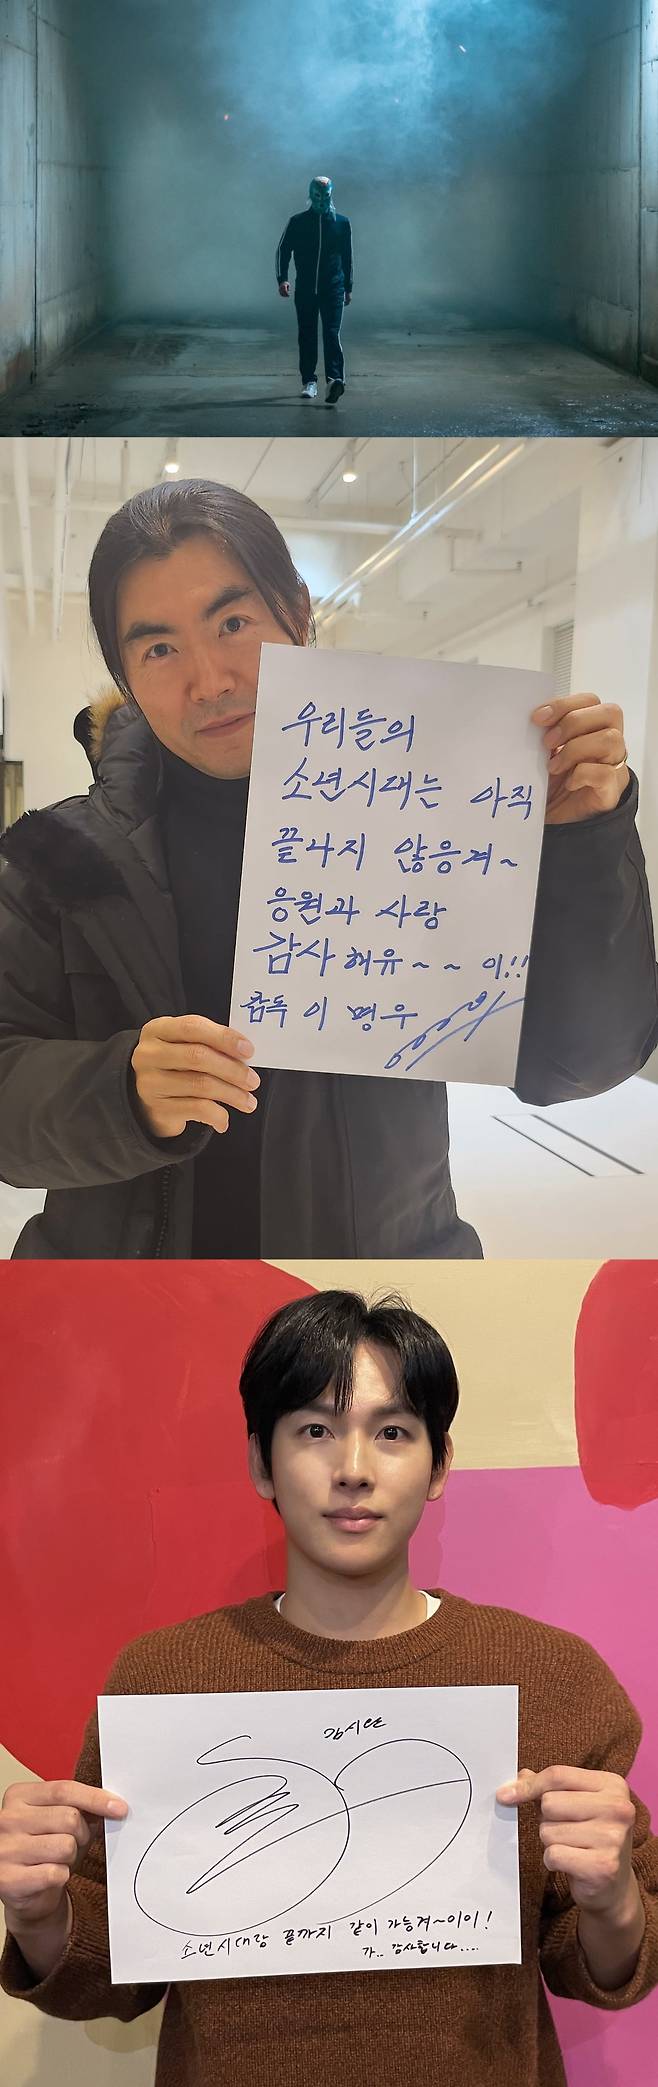 우리들의
소년시대는 아직
끝나지 않응겨~
응원과 사랑
감사해유~~ 이!!
감독 이명우
임시완
소년시대랑 끝까지 같이 가능겨~이이!
가.. 감사합니다....